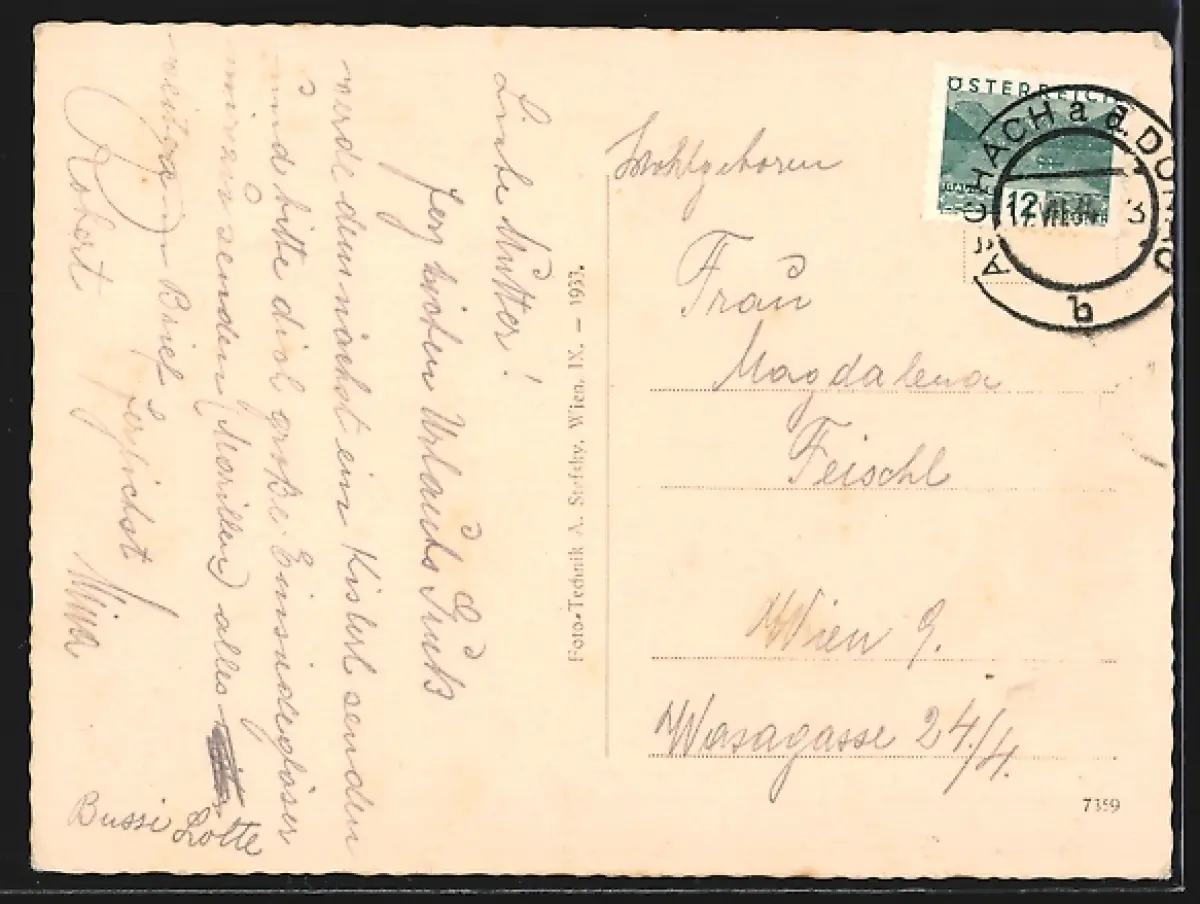 Liebe Mutter!
Herzlichsten Urlaubs Gruß
werde demnächst ein Kisterl senden
und bitte dich große Einsiedegläser
mir zu senden (Marillen) alles
weitere im Brief herzlichst
Robert Mina
Bussi Lotte
Foto-Technik A. Stefsky, Wien, IX. – 1933.
ÖSTERREICH
12
ASCHACH a. d. DONAU
VII
b
Wohlgeboren
Frau
Magdalena
Feischl
Wien 9.
Wasagasse 24/4.
7359